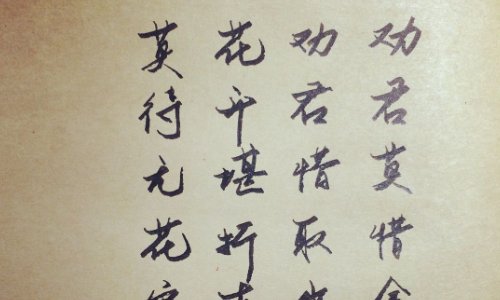 劝君莫惜
劝君惜取
花开堪折
莫待无花